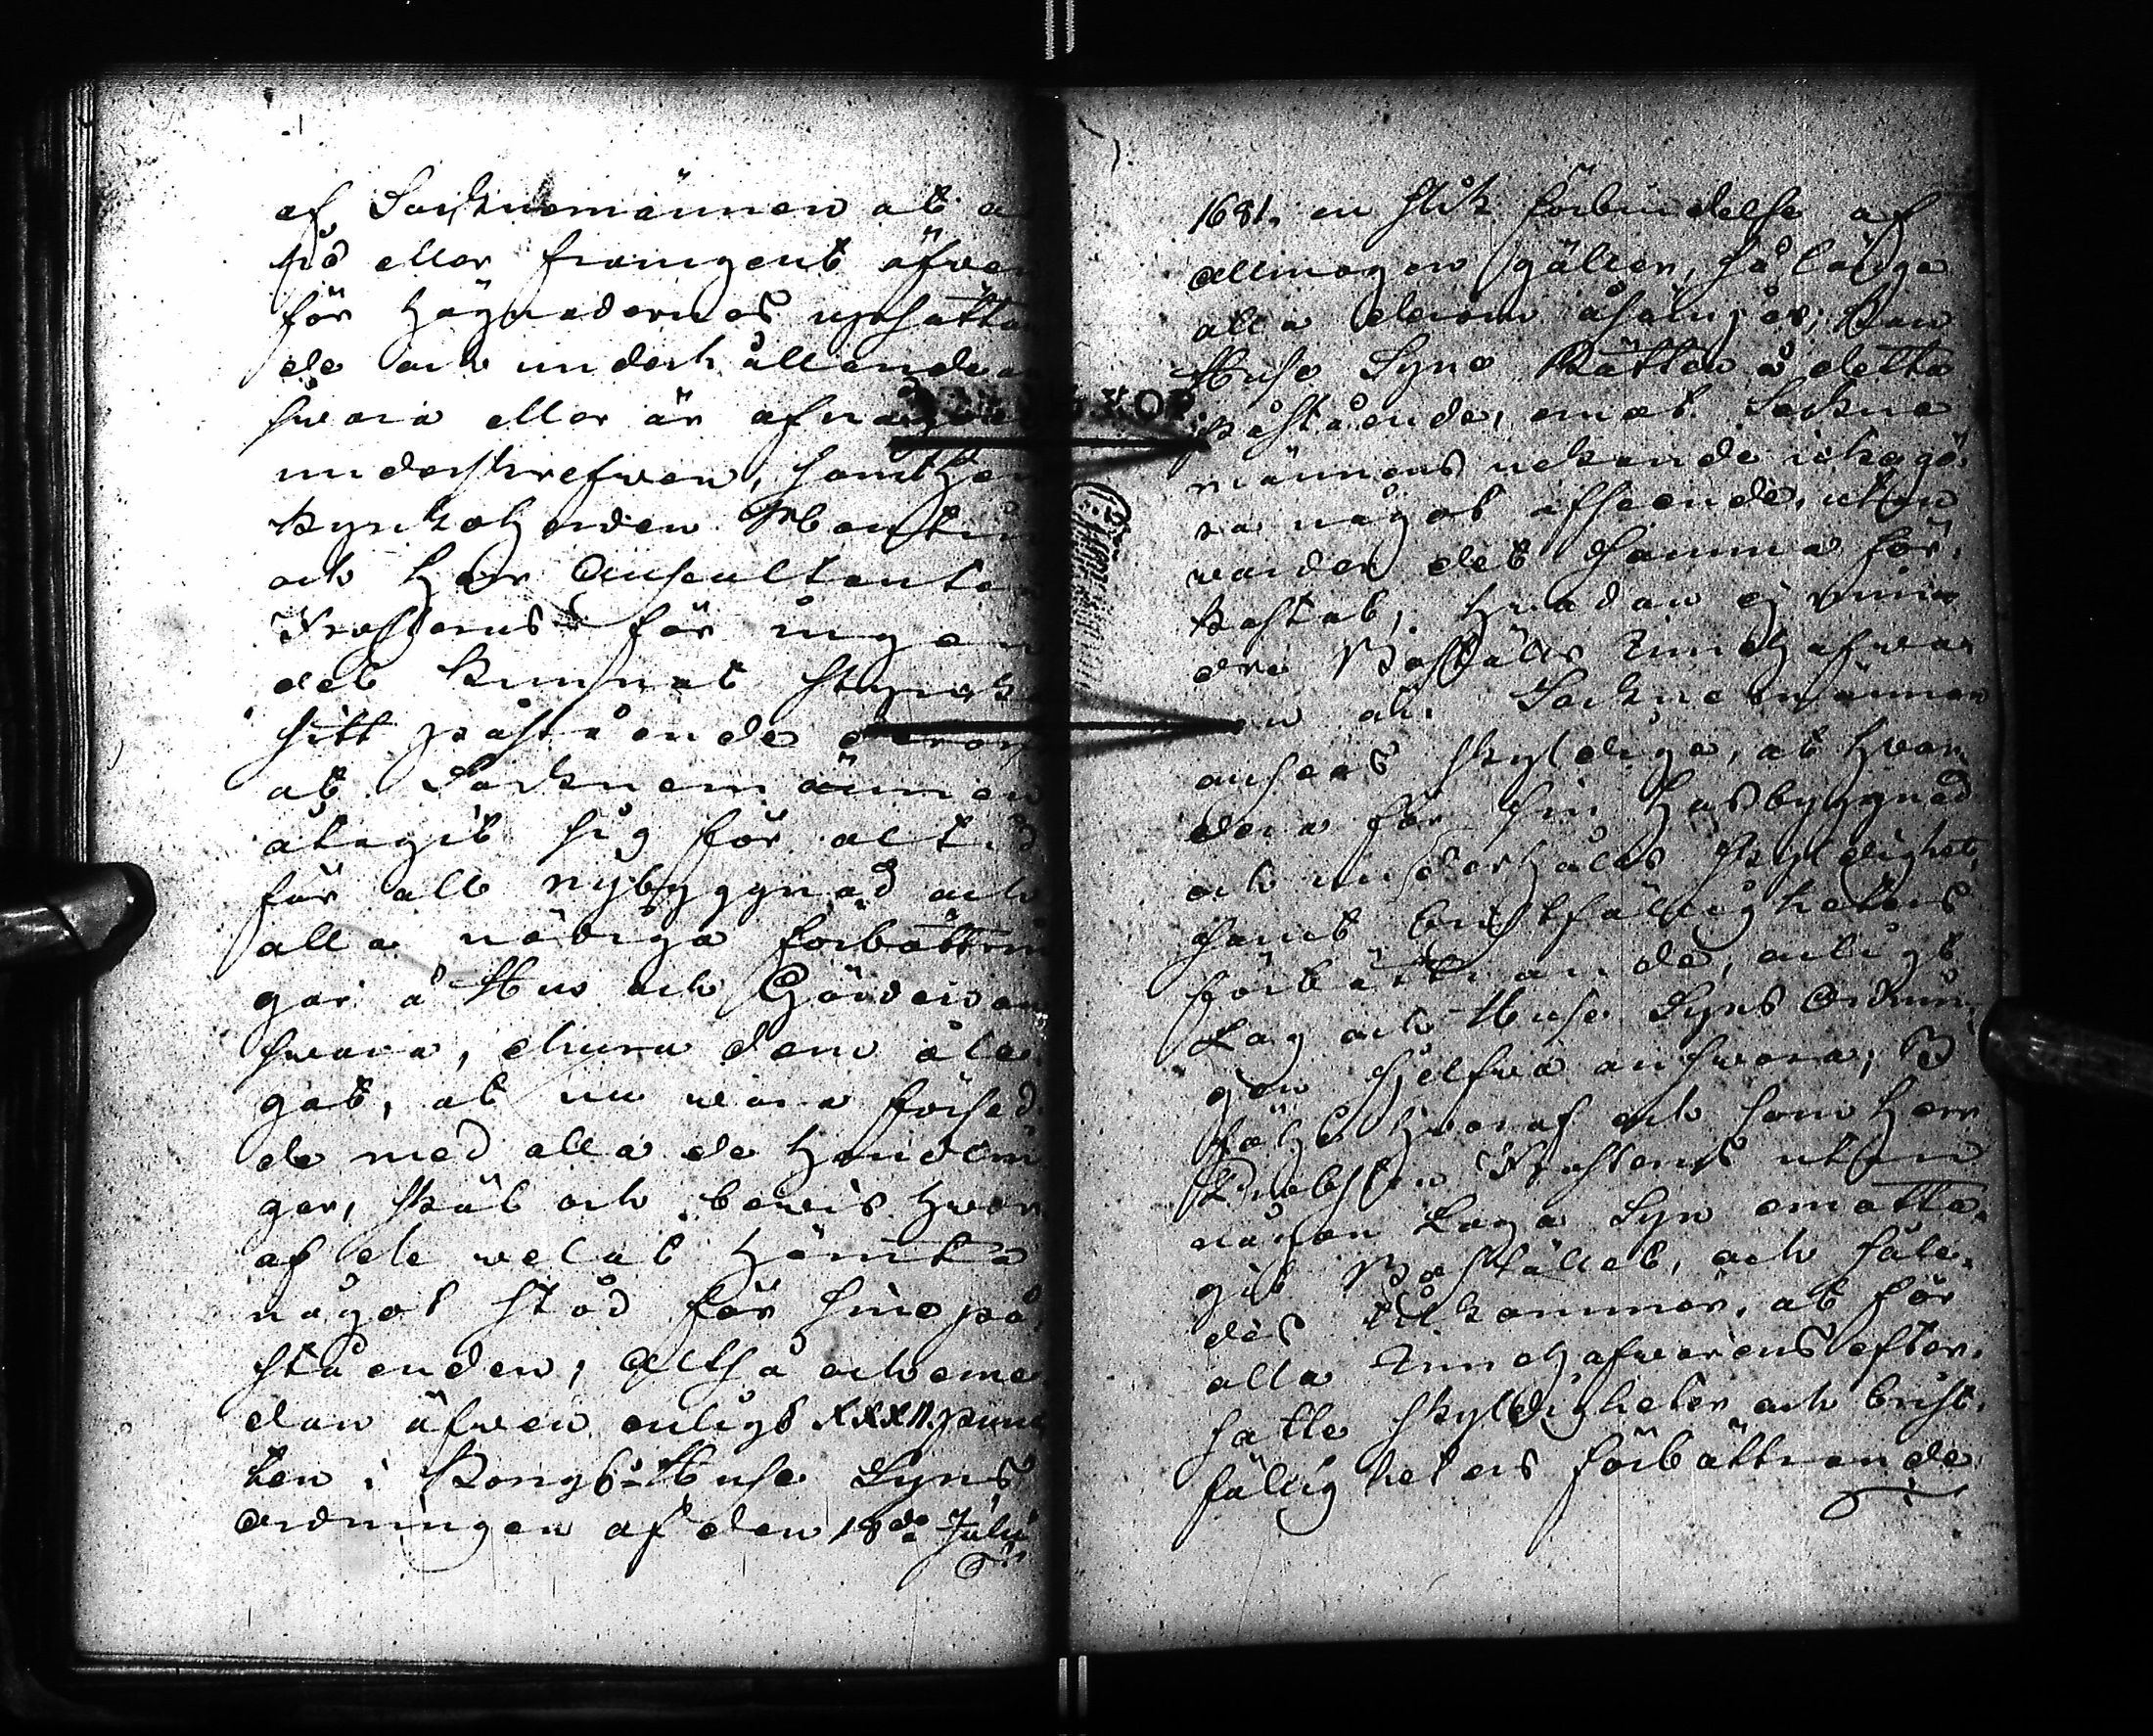 af Socknemännen at a
på eller framgent äfven
för Hägnadernas upsättan
de och underhållande a
svara eller är af någon
underskrefven, samt Her
Kyrkoherden
och Herr Auscultanten
för ingen
del kunnat styrka
sitt påstående derom
at Socknemännen
åtagit sig för altid
för all nybyggnad och
alla nödiga förbättrin
gar å Hus och Gärdes an
svara, ehuru dem åla
gat, at nu vara försed
de med alla de Handlin
gar, skäl och bevis hvar
af de velat hämta
något stöd för sine på
ståenden; Altså och eme
dan äfven enligt XXXII. punc
ten i Kongl. Huse Syns
Ordningen af den 18de Julii
1681. en slik förbindelse af
Allmogen gäller, så länge
alla derom åsämjas; Kan
Huse Syns Rätten å detta
påstående, emot Sockne
männens nekande icke gö
ra något afseende, utan
varder det samma för
kastat; hvadan ej min
dre Boställs Innehafvar
en än Socknemännen
anses skyldige, at hvar
dera för sin Husbyggnad
och underhålds skyldighet,
samt bristfällighetens
förbättrande, enligt
Lag och Huse Syns Ordnin
gen sjelfva ansvara; I
följe hvaraf och som Herr
utan
någon Laga Syn emotta
git Bostället, och såle
des tilkommer, at för
alla Innehafvarens efter
satte skyldigheter och brist
fälligheters förbättrande